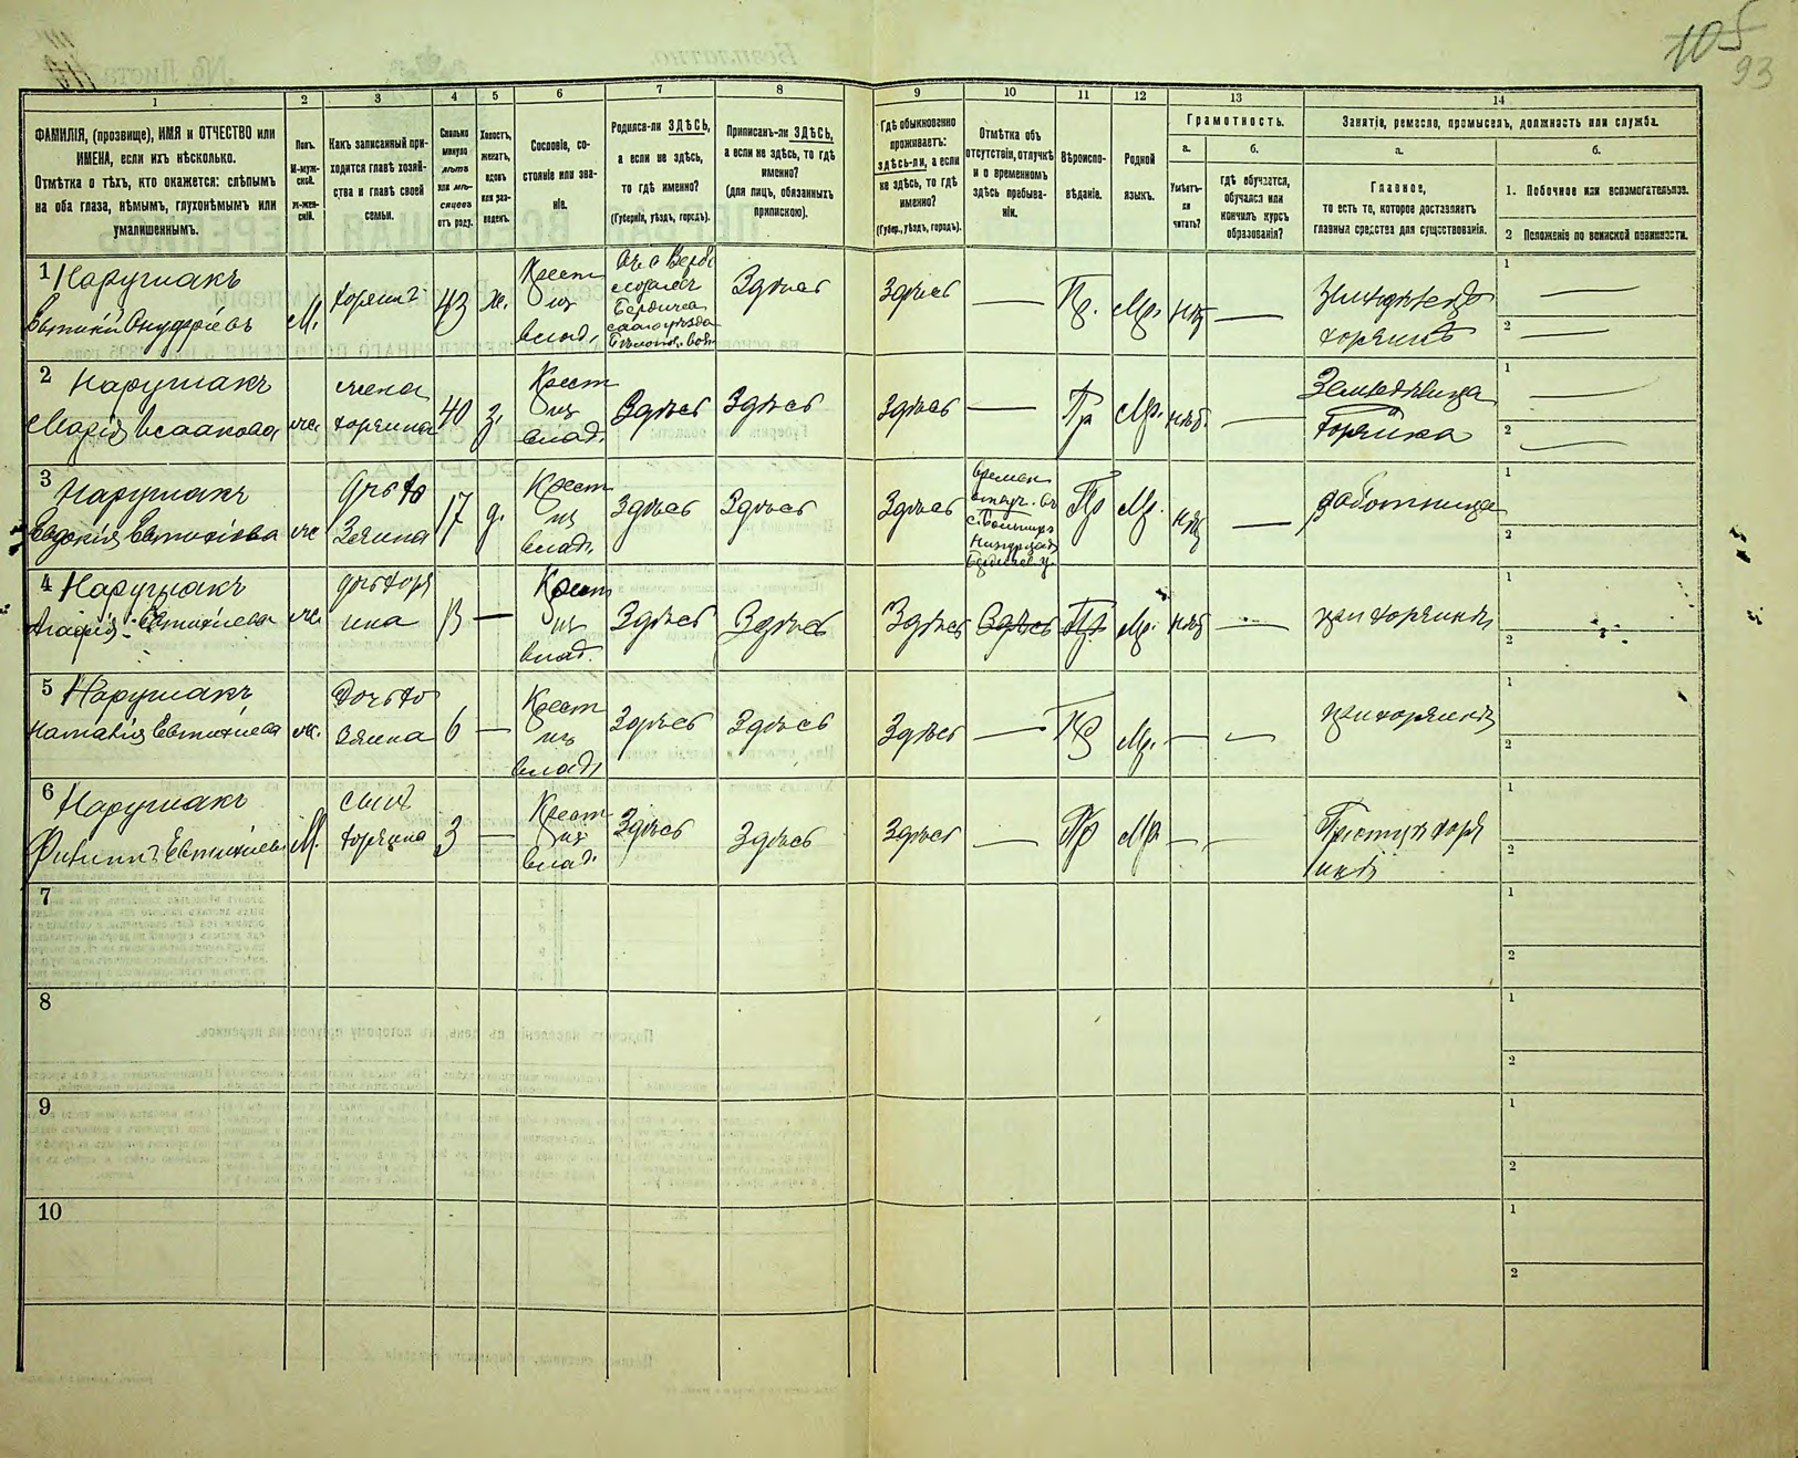 105
93
1
2
3
4
5
6
7
8
9
10
11
12
13
14
ФАМИЛІЯ, (прозвище), ИМЯ и ОТЧЕСТВО или
ИМЕНА, если ихъ нѣсколько.
Отмѣтка о тѣхъ, кто окажется: слѣпымъ
на оба глаза, нѣмымъ, глухонѣмымъ или
умалишеннымъ.
Полъ.
М-муж-
ской.
Ж-жен-
скій.
Какъ записанный при-
ходится главѣ хозяй-
ства и главѣ своей
семьи.
Сколько
минуло
лѣтъ
или мѣ-
сяцевъ
отъ роду.
Холостъ,
женатъ,
вдовъ
или раз-
веденъ.
Сословіе, со-
стояніе или зва-
ніе.
Родился-ли ЗДѢСЬ,
а если не здѣсь,
то гдѣ именно?
(Губернія, уѣздъ, городъ).
Приписанъ-ли ЗДѢСЬ,
а если не здѣсь, то гдѣ
именно?
(для лицъ, обязанныхъ
припискою).
Гдѣ обыкновенно
проживаетъ:
здѣсь-ли, а если
не здѣсь, то гдѣ
именно?
(Губер., уѣздъ, городъ).
Отмѣтка объ
отсутствіи, отлучкѣ
и о временномъ
здѣсь пребыва-
ніи.
Вѣроиспо-
вѣданіе.
Родной
языкъ.
Грамотность.
а.
Умѣетъ-
ли
читать?
б.
гдѣ обучается,
обучался или
кончилъ курсъ
образованія?
Занятіе, ремесло, промыселъ, должность или служба.
а.
Главное,
то есть то, которое доставляетъ
главныя средства для существованія.
б.
1. Побочное или вспомогательное.
2 Положеніе по воинской повинности.
1 Наружнакъ
Евтихій Онуфріевъ
М.
хозяинъ
43
ж.
Крест
из
влад.
Здѣсь
Здѣсь
—
Пр.
Мр.
нѣт
—
хозяинъ
1 —
2 —
2 Наружнакъ
Марія Исаакова
ж.
жена
хозяина
40
з.
Крест
из
влад.
Здѣсь
Здѣсь
Здѣсь
—
Пр
Мр.
нѣт.
—
Земледѣлица
хозяйка
1 —
2 —
3 Наружнакъ
Евдокія Евтихіева
ж
дочь хо
зяина
17
д.
Крест
из
влад.
Здѣсь
Здѣсь
Здѣсь
Пр
Мр.
нѣт
—
работница
1
2
4 Наружнакъ
Агафія Евтихіева
ж.
дочь хозя
ина
13
—
Крест
из
влад.
Здѣсь
Здѣсь
Здѣсь
Здѣсь
Пр.
Мр.
нѣт
—
при хозяинѣ
1
2
5 Наружнакъ
Наталія Евтихіева
ж.
дочь хо
зяина
6
—
Крест
из
влад.
Здѣсь
Здѣсь
Здѣсь
—
Пр
Мр.
—
—
при хозяинѣ
1
2
6 Наружнакъ
Филиппъ Евтихіевъ
М.
сынъ
хозяина
3
—
Крест
из
влад.
Здѣсь
Здѣсь
Здѣсь
—
Пр
Мр
—
—
хозя
инѣ
1
2
7
1
2
8
1
2
9
1
2
10
1
2